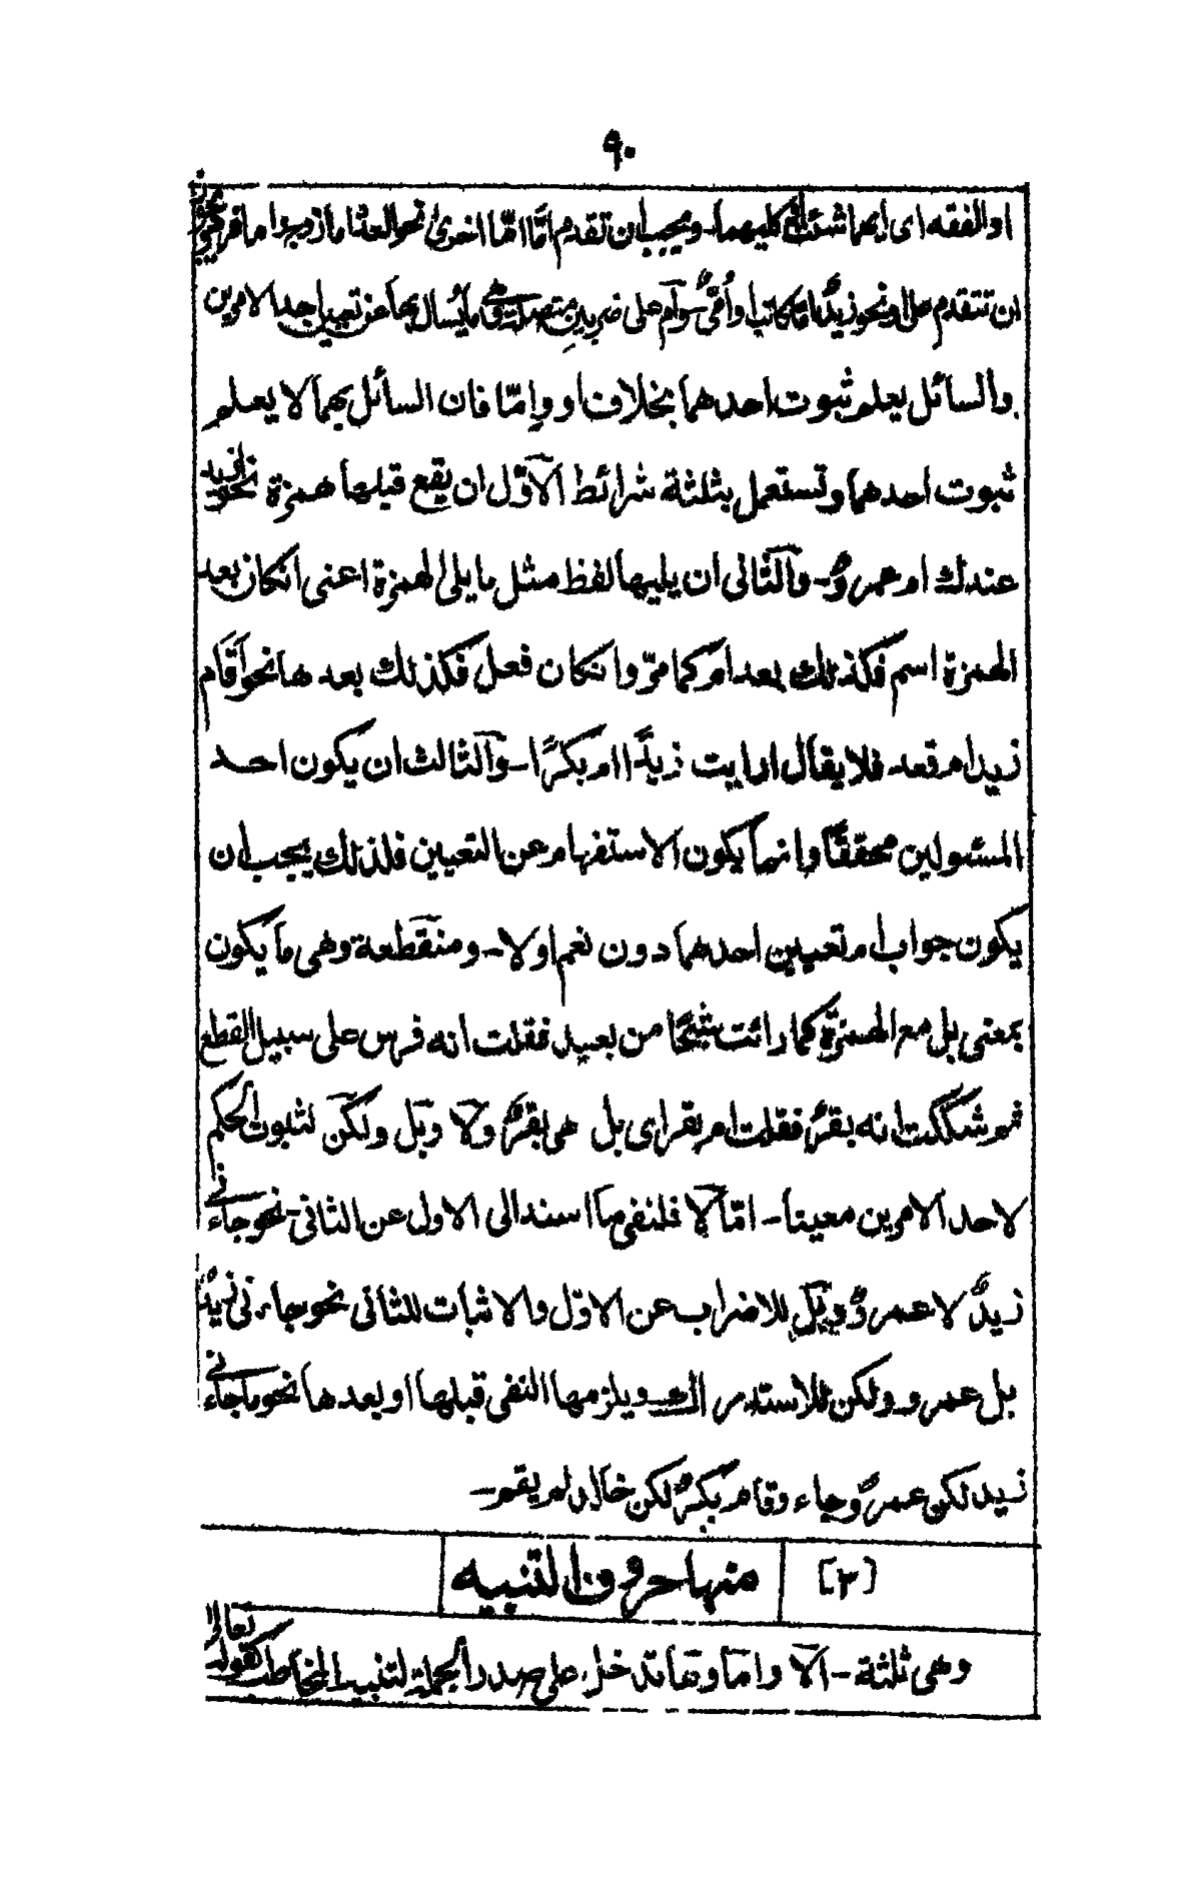 ٩٠
او الفقه اى ايهما شئت او كليهما۔ ويجب ان تقدم امّا امّا اخرى نحو العدد اما زوج واما فرد ويجوز
ان تتقدم على او نحو زيدٌ اما كاتب او أمّىٌّ وآم على ضربين متصلة وهى ما يُسأل بها عن تعيين احد الامرين
والسائل يعلم ثبوت احدهما بخلاف او وامّا فان السائل بهما لا يعلم
ثبوت احدهما وتستعمل بثلثة شرائط الآوّل ان يقع قبلها همزة نحو ازيد
عندك ام عمروٌ۔ وآلثانى ان يليها لفظ مثل ما يلى الهمزة اعنى انكان بعد
الهمزة اسم فكذلك بعد ام كما مرّ وانكان فعل فكذلك بعدها نحو آقام
زيد ام قعد فلا يقال ارايت زيدًا ام بكرًا۔ وآلثالث ان يكون احد
المسئولين محققًا وانما يكون الاستفهام عن التعيين فلذلك يجب ان
يكون جواب ام تعيين احدهما دون نعم او لا۔ ومنقطعة وهى ما يكون
بمعنى بل مع الهمزة كما رائت شبحًا من بعيد فقلت انه فرس على سبيل القطع
ثم شككت انه بقرٌ فقلت ام بقر اى بل هى بقرٌ ولآ وبل ولكن لثبوت الحكم
لاحد الامرين معينا۔ امّا لآ فلنفى ما اسند الى الاول عن الثانى نحو جائنى
زيدٌ لا عمروٌ وبل للاضراب عن الاوّل والاثبات للثانى نحو جاءنى زيدٌ
بل عمرو ولكن للاستدراك ويلزمها النفى قبلها او بعدها نحو ما جائنى
زيد لكن عمروٌ جاء وقام بكرٌ لكن خالد لم يقم۔
[٣] منها حروف التنبيه
وهى ثلثة۔ الآ واما وها تدخل على صدر الجملة لتنبيه المخاطب كقوله تعالى